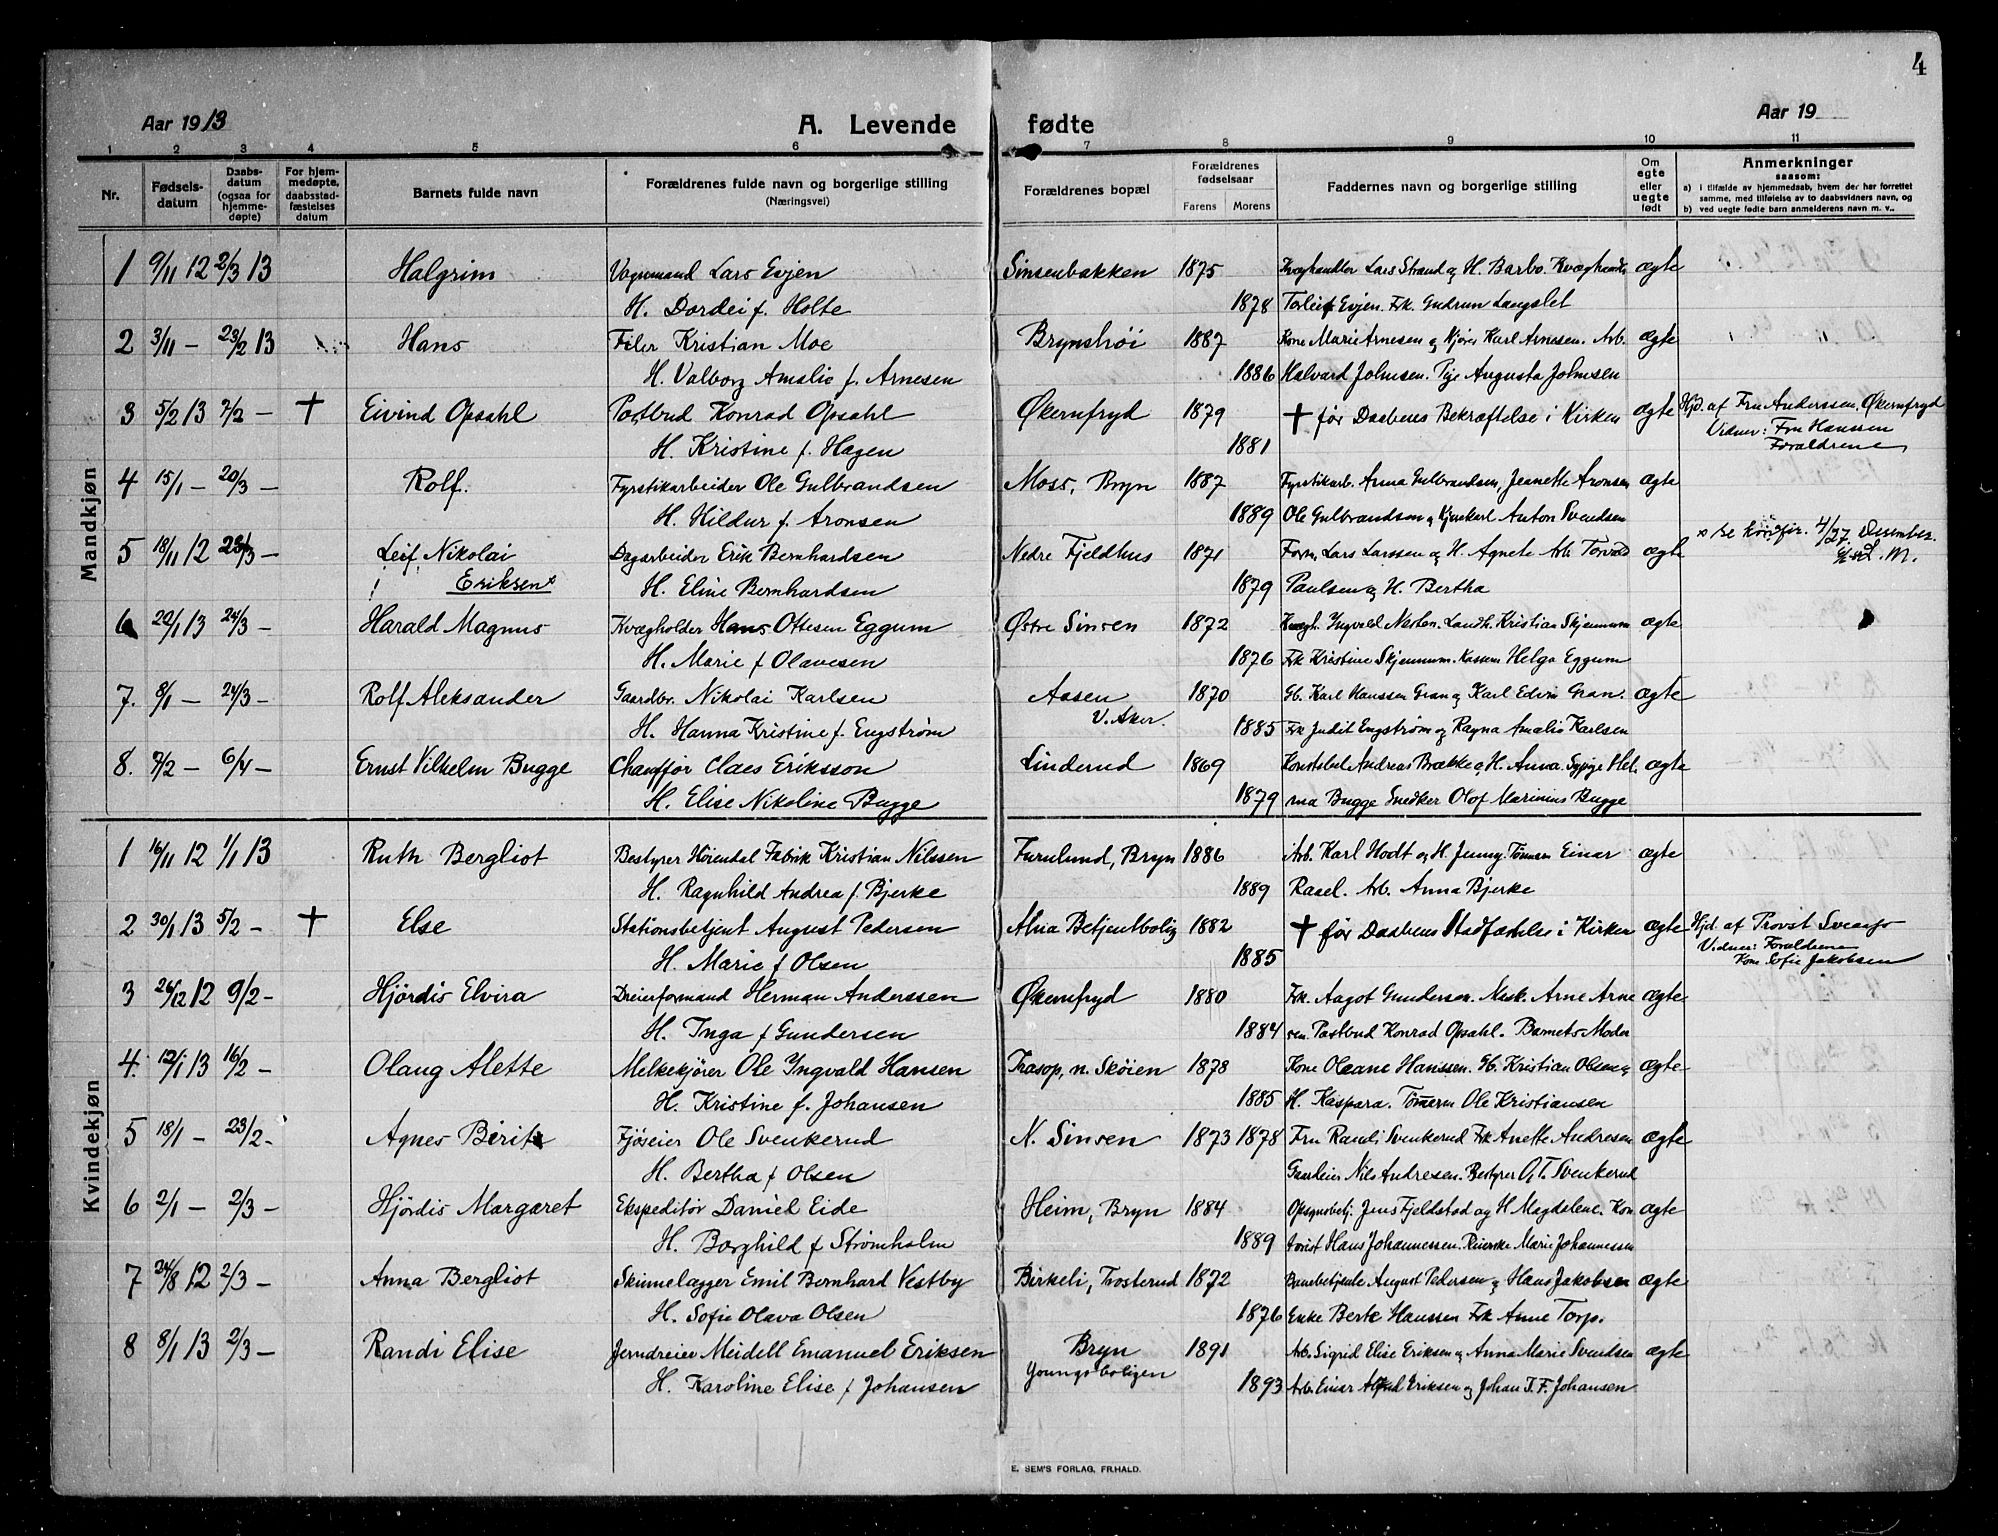 4
Aar 1913 A. Levende fødte Aar 19
1 2 3 4 5 6 7 8 9 10 11
Nr. Fødsels-datum Daabs-datum (ogsaa for hjemme-døpte) For hjem-medøpte, daabsstad-fæstelses datum Barnets fulde navn Forældrenes fulde navn og borgerlige stilling (Næringsvei) Forældrenes bopæl Forældrenes fødselsaar Farens Morens Faddernes navn og borgerlige stilling Om egte eller uegte født Anmerkninger saasom:
a) i tilfælde av hjemmedaab, hvem der har forrettet samme, med tilføielse av to daabsvidners navn, og
b) ved uegte fødte barn anmelderens navn m. v..
Mandkjøn
1 9/11 12 2/3 13 Halgrim Vognmand Lars Evjen Sinsenbakken 1875 Kvæghandler Lars Strand og H. Barbo. Kvæghandl. ægte
H. Dordei f. Holte 1878 Torleif Evjen. Frk. Gudrun Langslet
2 3/11 — 23/2 13 Hans Filer Kristian Moe Brynshøi 1887 Kone Marie Arnesen og Kjører Karl Arnesen. Arb. ægte
H. Valborg Amalie f. Arnesen 1886 Halvard Johnsen. Pige Augusta Johnsen
3 5/2 13 7/2 — † Eivind Opsahl Postbud Konrad Opsahl Økernfryd 1879 † før Daabens Bekræftelse i Kirken ægte Hjd. af Fru Anderssen, Økernfryd
H. Kristine f. Hagen 1881 Vidner: Fru Hanssen
Forældrene
4 15/1 — 20/3 — Rolf. Fyrstikarbeider Ole Gulbrandsen Moss, Bryn 1887 Fyrstikarb. Anna Gulbrandsen, Jeanette Aronsen ægte
H. Hildur f. Aronsen 1889 Ole Gulbrandsen og Kjørekarl Anton Svendsen
5 18/11 12 23/3 — Leif Nikolai Dagarbeider Erik Bernhardsen Nedre Fjeldhus 1871 Form. Lars Larssen og H. Agnete Arb. Torvald ægte x se 4/27 Desember.
Eriksen x H. Eline Bernhardsen 1879 Paulsen og H. Bertha
6 20/1 13 24/3 — Harald Magnus Kvægholder Hans Ottesen Eggum Østre Sinsen 1872 Kvægh. Yngvald Nesten. Landh. Kristian Skjennum ægte
H. Marie f Olavesen 1876 Frk Kristine Skjennum. Helga Eggum
7. 8/1 — 24/3 — Rolf Aleksander Gaardbr. Nikolai Karlsen Aasen 1870 Gb. Karl Hanssen Gran og Karl Edvin Gran. ægte
H. Hanna Kristine f. Engstrøm V. Aker. 1885 Frk Judit Engstrøm og Ragna Amalie Karlsen
8. 7/2 — 6/4 — Ernst Vilhelm Bugge Chauffør Claes Eriksson Linderud 1869 Konstabel Andreas Brække og H. Anna. Sypige Hel. ægte
H. Elise Nikoline Bugge 1879 ma Bugge Snedker Olof Marinius Bugge
Kvindekjøn
1 16/11 12 1/1 13 Ruth Bergliot Bestyrer Høiendal Fabrik Kristian Nilssen Furulund, Bryn 1886 Arb. Karl Hodt og H. Jenny. Tømmerm Einar ægte
H. Ragnhild Andrea f. Bjerke 1889 Rasel. Arb. Anna Bjerke
2 30/1 13 5/2 — † Else Stationsbetjent August Pedersen Alna Betjentbolig 1882 † før Daabens Stadfæstelse i Kirken ægte Hjd. af Provst
H. Marie f Olsen 1885 Vidner: Forældrene
Kone Sofie Jakobsen
3 26/12 12 9/2 — Hjördis Elvira Dreierformand Herman Anderssen Økernfryd 1880 Frk. Aagot Gundersen. Mask. Arne Arne ægte
H. Inga f Gundersen 1884 sen. Postbud Konrad Opsahl. Barnets Moder
4. 12/1 13 16/2 — Olaug Alette Melkekjører Ole Yngvald Hansen Trasop, n. Skøien 1878 Kone Oleane Hanssen. Gb. Kristian Olsen og ægte
H. Kristine f. Johansen 1885 H. Kaspara. Tømerm Ole Kristiansen
5 18/1 — 23/2 — Agnes Berit Fjøseier Ole Svenkerud N. Sinsen 1873 1878 Fru Randi Svenkerud Frk Anette Andresen ægte
H. Bertha f Olsen Nils Andresen. Bestyrer O, T. Svenkerud
6 2/1 — 2/3 — Hjördis Margaret Ekspeditör Daniel Eide Heim, Bryn 1884 Opsynsbetj. Jens Fjeldstad og H Magdalene. Kon ægte
H. Borghild f Strømholm 1889 torist Hans Johannessen. Marie Johannessen
7 24/8 12 2/3 — Anna Bergliot Skinnelægger Emil Bernhard Vestby Birkeli, Trosterud 1872 Banebetjente August Pedersen og Hans Jakobsen ægte
H. Sofie Olava Olsen 1876 Enke Berte Hanssen Frk Anne Torp.
8 8/1 13 2/3 — Randi Elise Jerndreier Meidell Emanuel Eriksen Bryn 1891 Arb. Sigrid Elise Eriksen og Anna Marie Svendsen ægte
H. Karoline Elise f Johansen Youngsboligen 1893 Arb. Einar Alfred Eriksen og Johan T. F. Johansen
E. SEM'S FORLAG, FR.HALD.